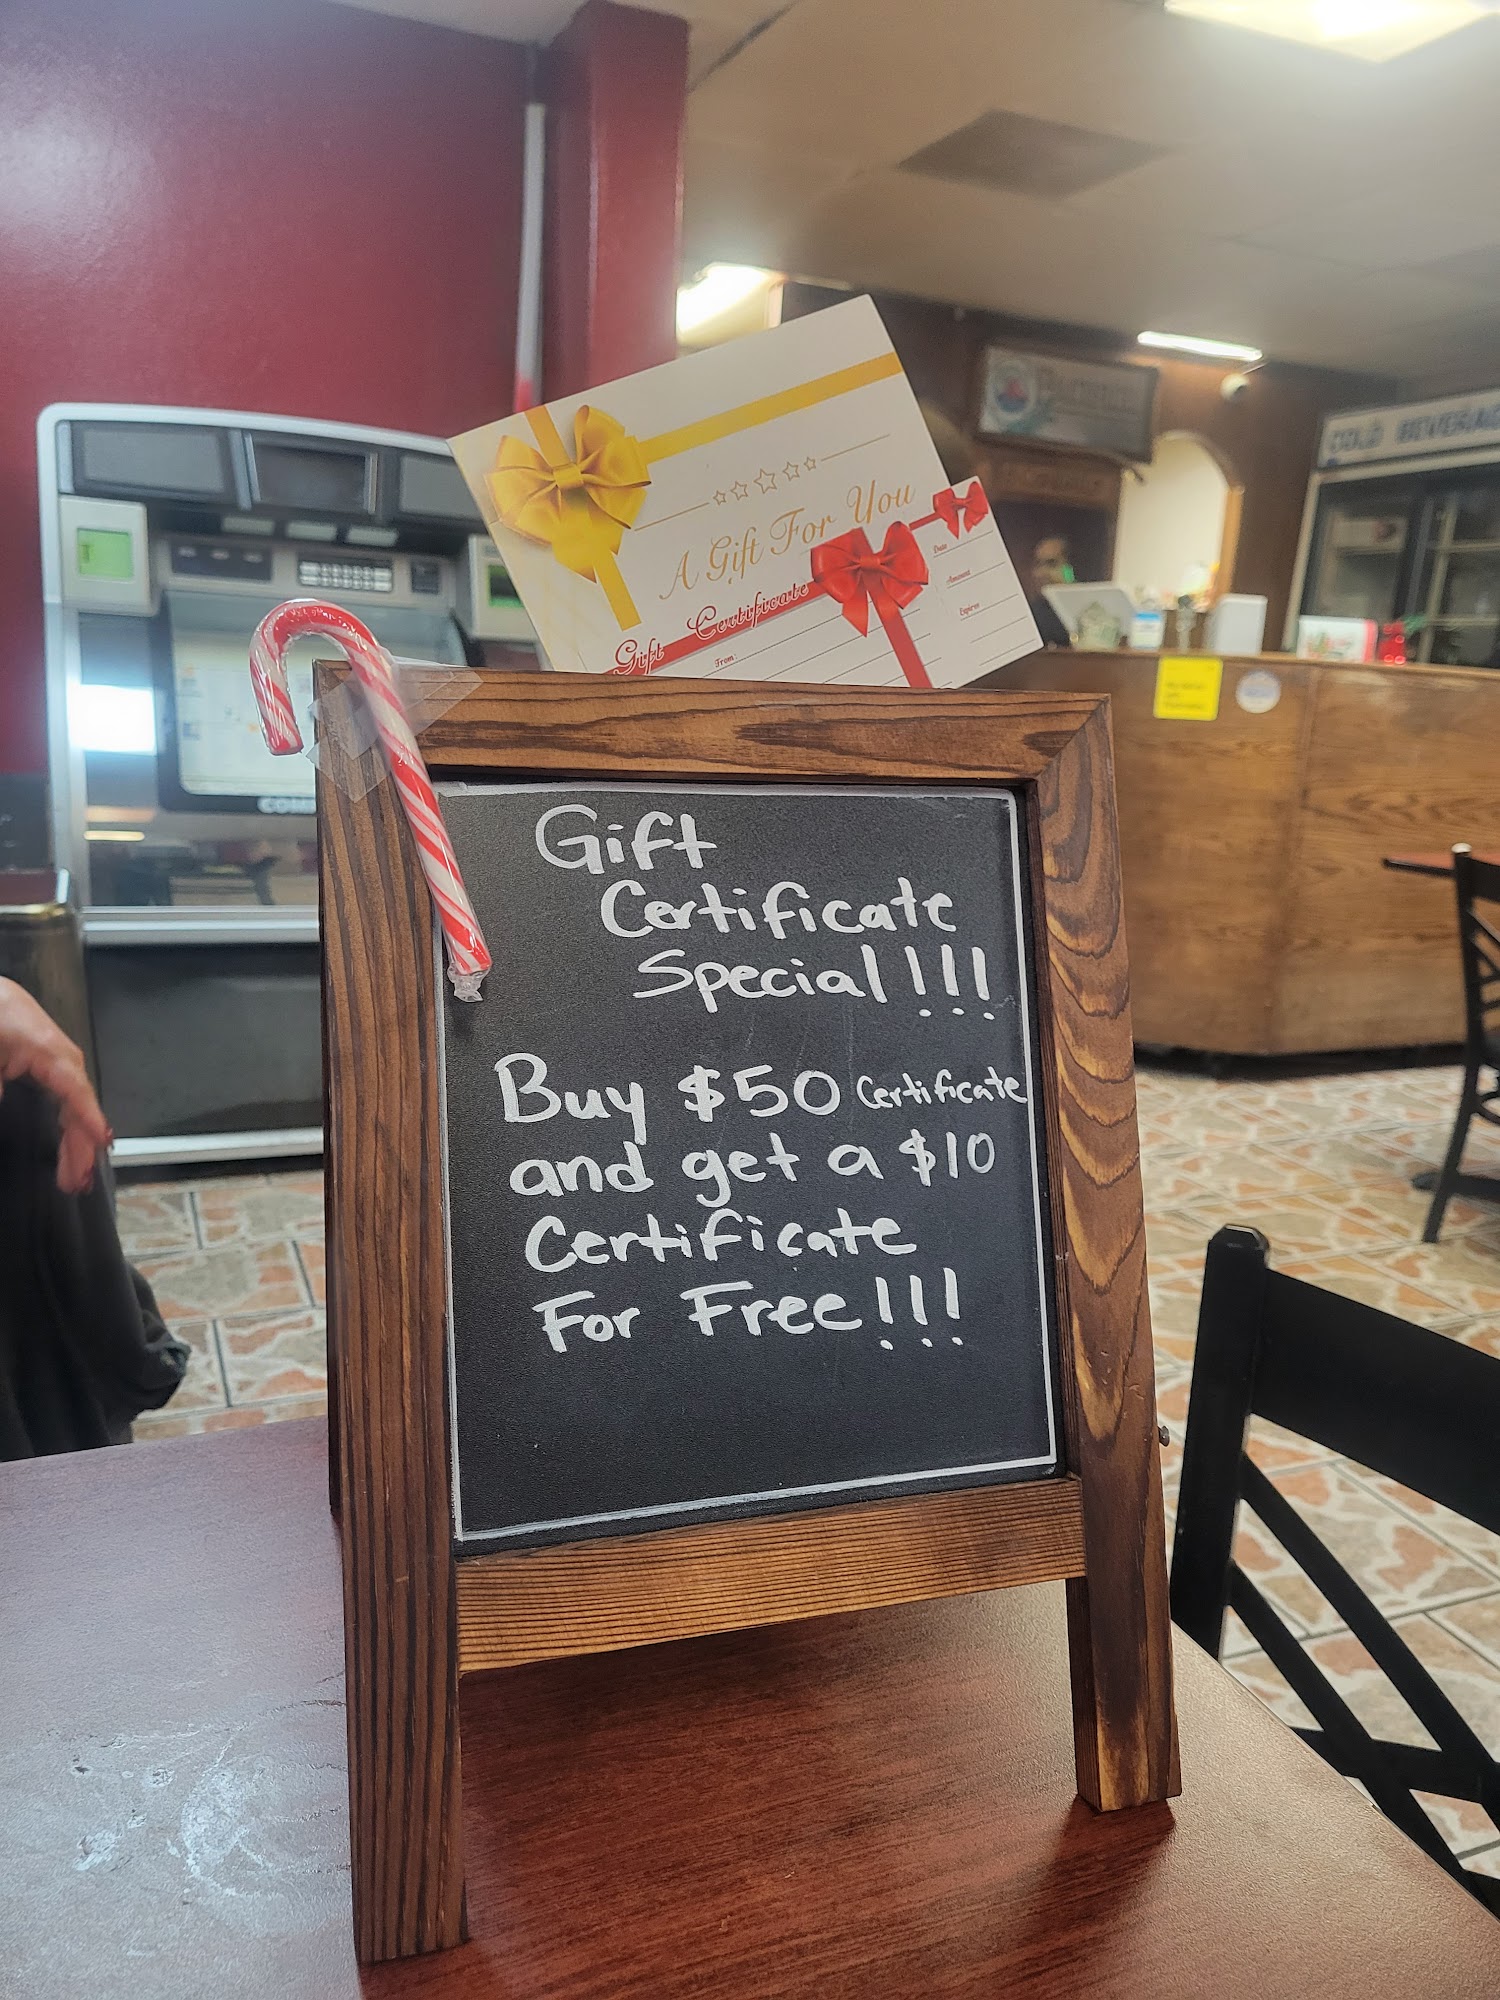 A Gift For You
Gift Certificate
From:
Date
Amount
Expires
COLD BEVERAG
Gift
Certificate
Special!!!
Buy $50 Certificate
and get a $10
Certificate
For Free!!!